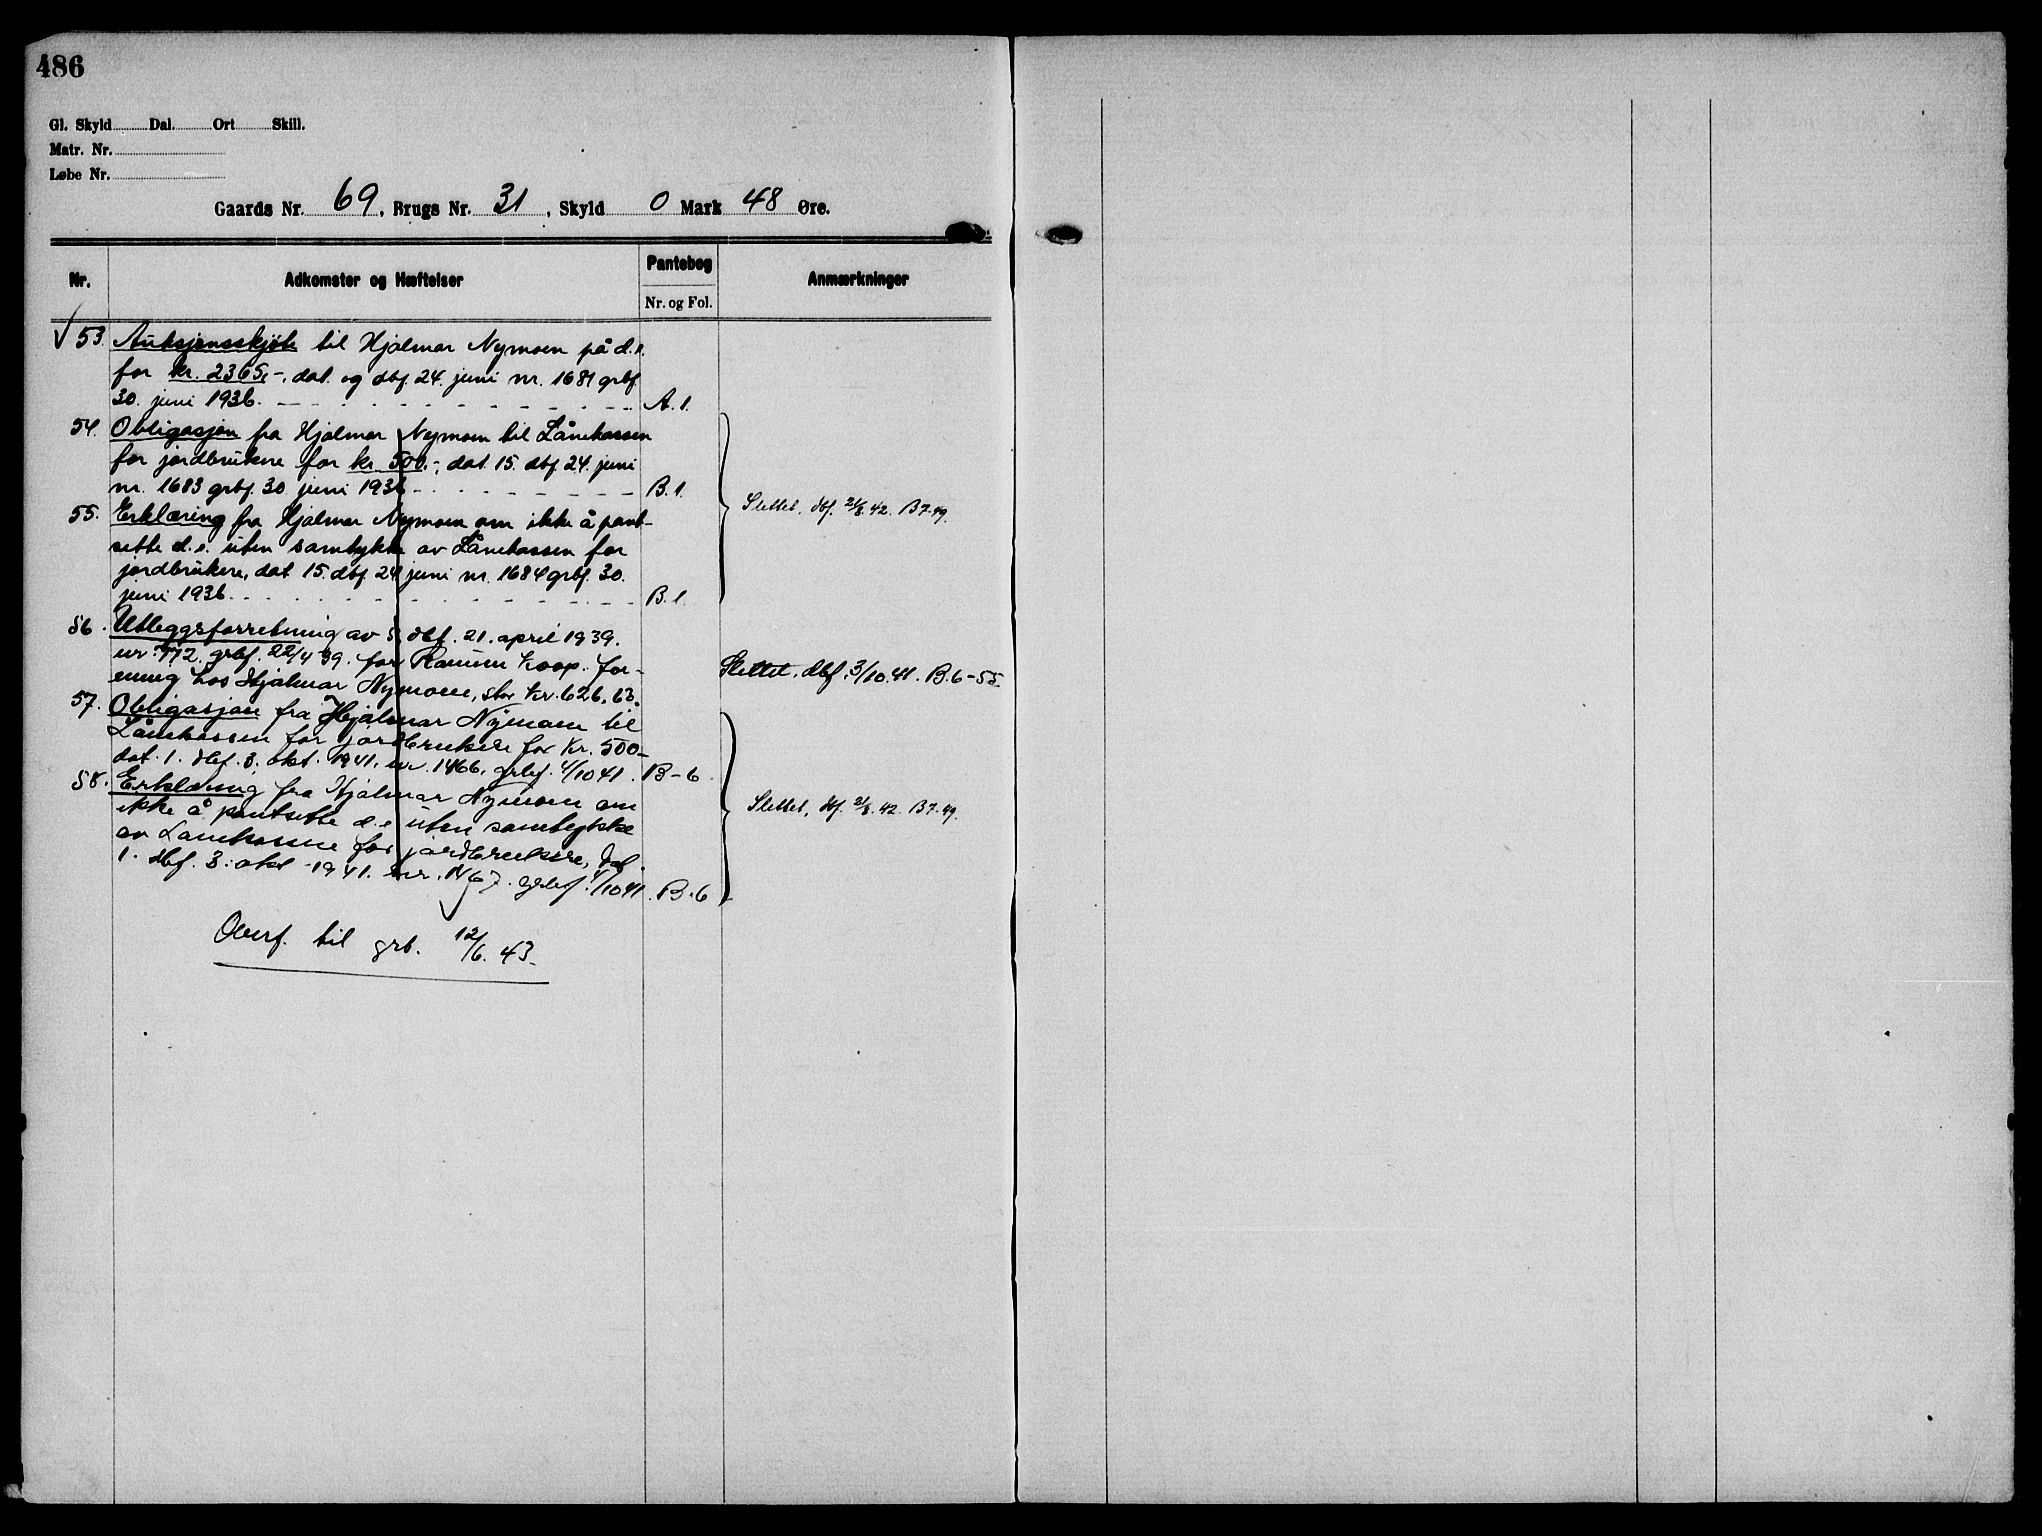 486
Gl. Skyld Dal. Ort Skill.
Matr. Nr.
Løbe Nr.
Gaards Nr. 69, Brugs Nr. 31, Skyld 0 Mark 48 Øre.
Nr. Adkomster og Hæftelser Pantebog Anmærkninger
Nr. og Fol.
53. Auksjonsskjøte til Hjalmar Nymoen på d.e.
for kr. 2365,-, dat. og dbf. 24. juni nr. 1681 grbf.
30. juni 1936. A.1.
54. Obligasjon fra Hjalmar Nymoen til Lånekassen
for jordbrukere for kr. 500,-, dat. 15. dbf. 24. juni
nr. 1683 grbf. 30 juni 1936 B.1.
55. Erklæring fra Hjalmar Nymoen om ikke å pant-
sette d.e. uten samtykke av Lånekassen for
jordbrukere, dat 15. dbf. 24 juni nr. 1684 grbf. 30.
juni 1936. B.1.
Slettet, dbf. 21/8.42. B7.49.
56. Utleggsforretning av 5. dbf. 21. april 1939.
nr. 772. grbf. 22/4 39. for Ranum Koop. for-
ening hos Hjalmar Nymoen, stor kr. 626,63.
Slettet. dbf. 3/10.41. B.6-55
57. Obligasjon fra Hjalmar Nymoen til
Lånekassen for jordbrukere for kr. 500-
dat. 1. dbf. 3. okt. 1941. nr. 1466. grbf. 4/10 41. B-6
58. Erklæring fra Hjalmar Nymoen om
ikke å pantsette d.e uten samtykke
av Lånekassen for jordbrukere, dat.
1. dbf. 3. okt. 1941. nr. 1467. grbf. 4/10 41. B.6
Slettet, dbf. 21/8.42. B7.49.
Overf. til grb. 12/6.43.